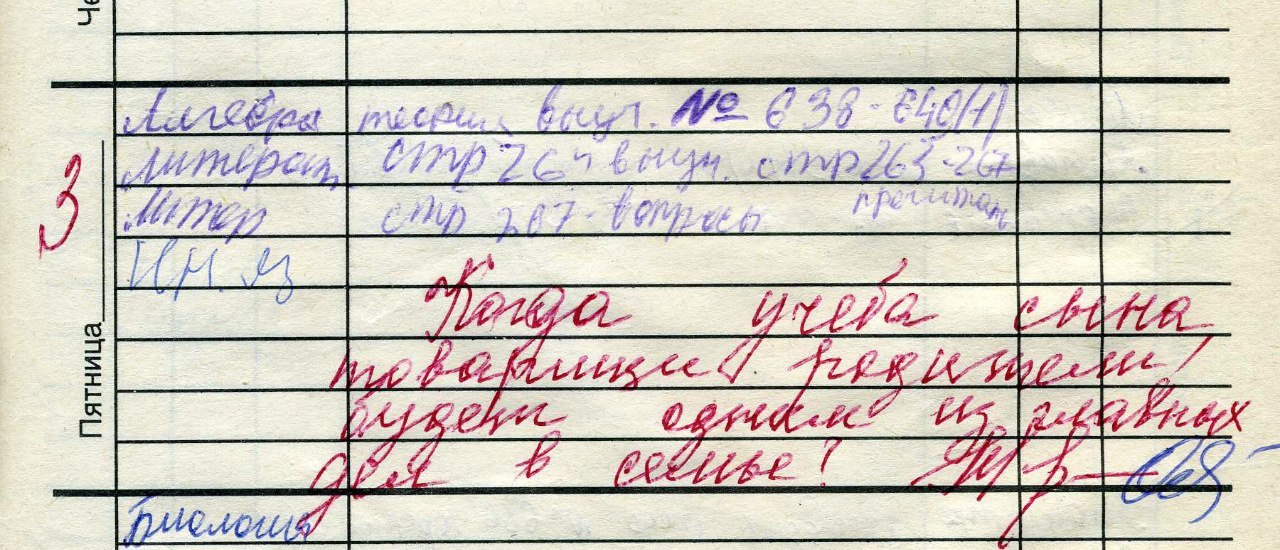 Че
Алгебра теория выуч. № 638-640(1)
Литерат. стр 264 выуч. стр 263-267
прочитать
Литер стр 267-вопросы
Ин. яз
3
Пятница
Когда учеба сына
товарищи родители!
будет одним из главных
дел в семье?
Биология